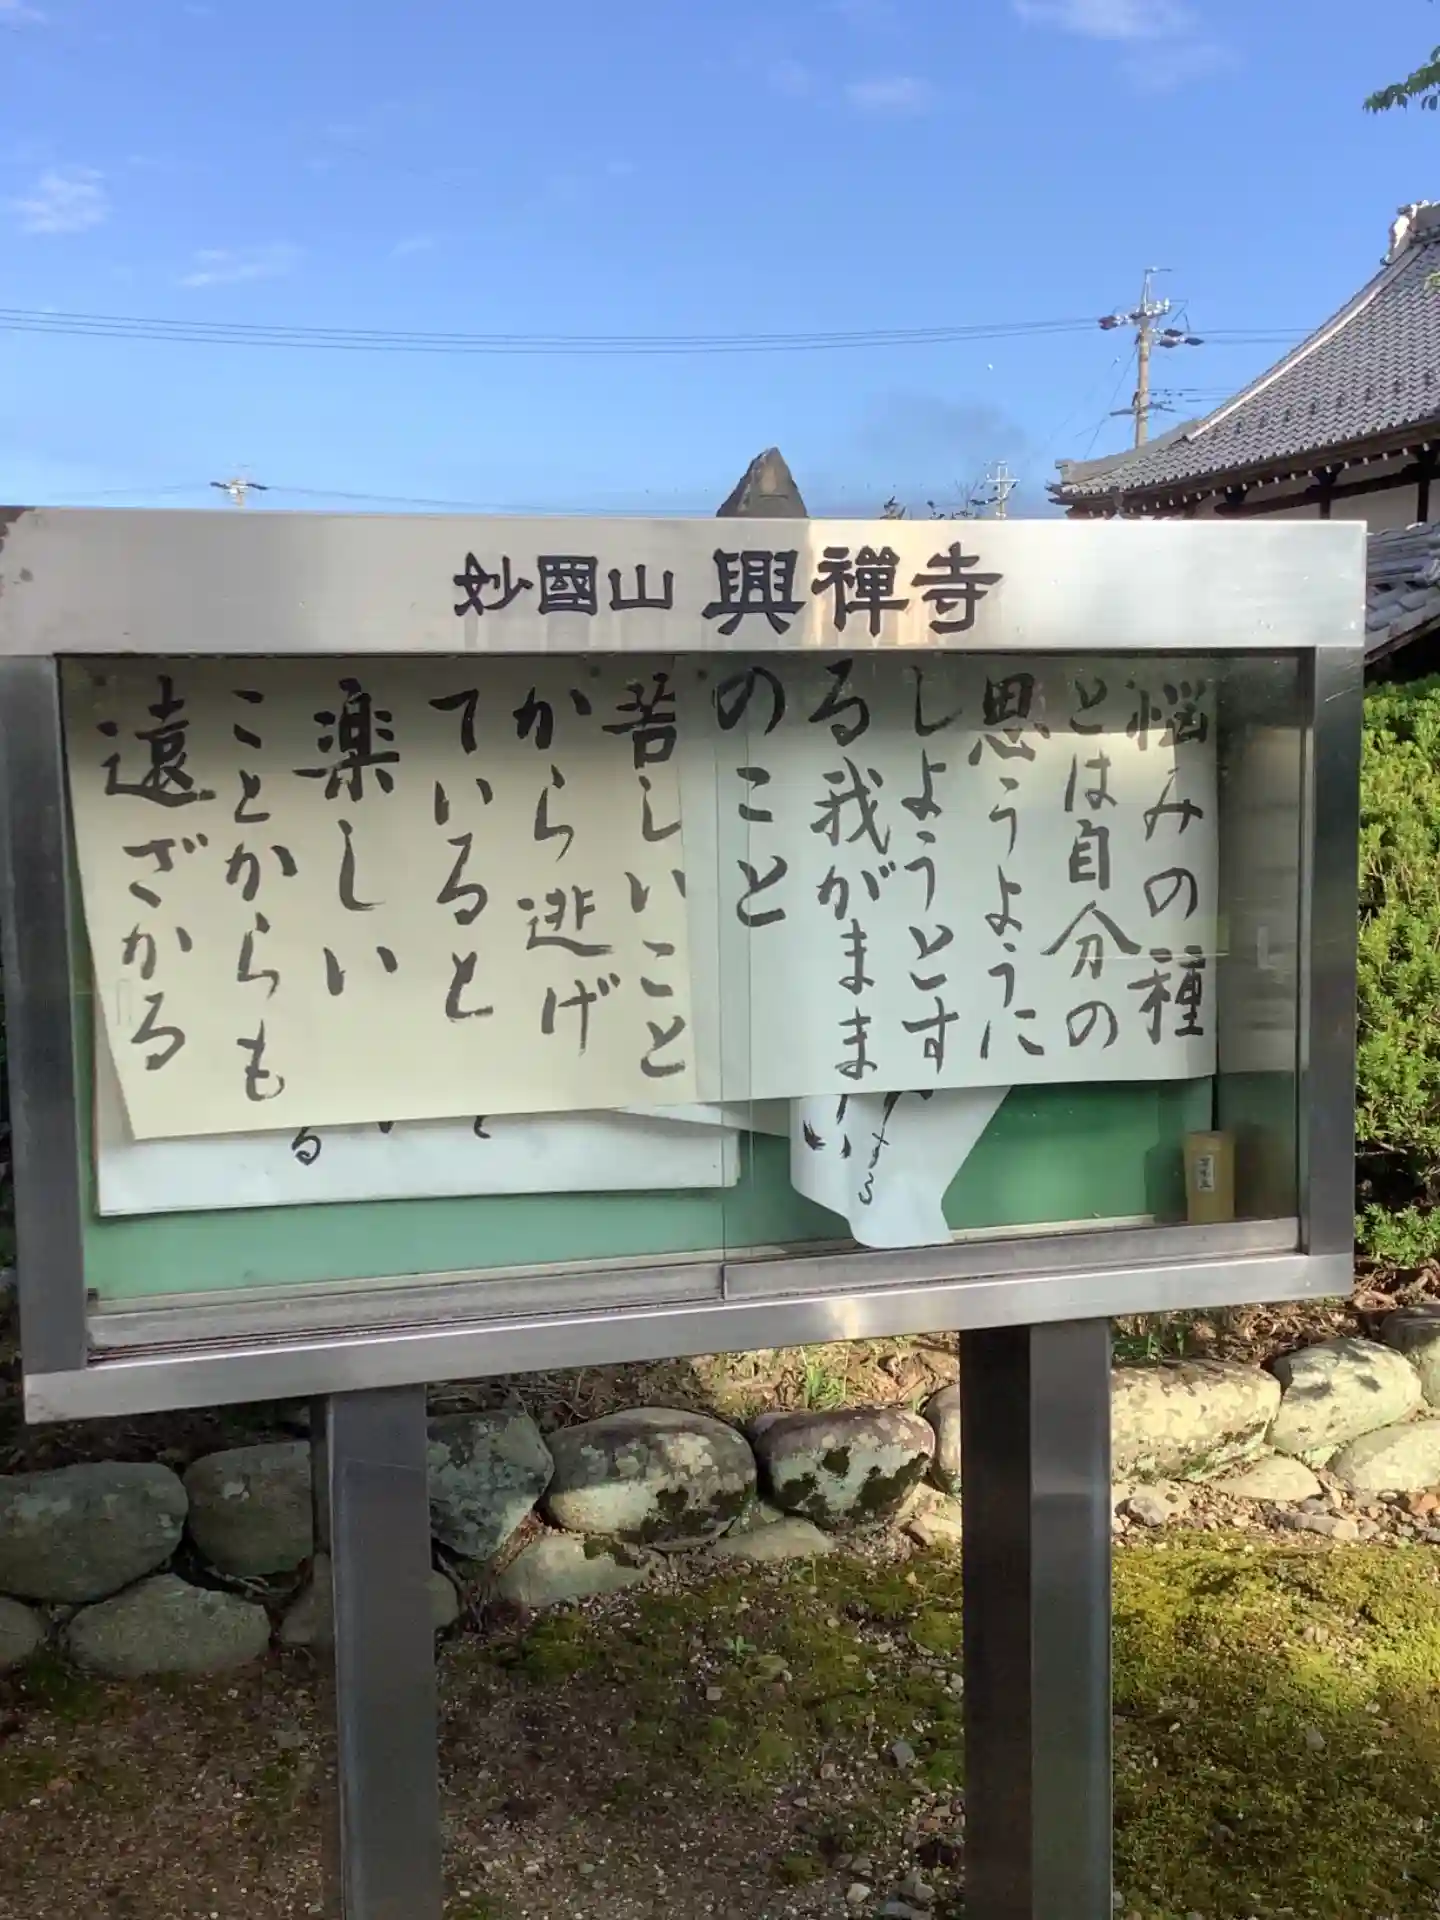 妙國山 興禅寺
悩みの種
とは自分の
思うように
しようとす
る我がまま
のこと
苦しいこと
から逃げ
ていると
楽しい
ことからも
遠ざかる
る